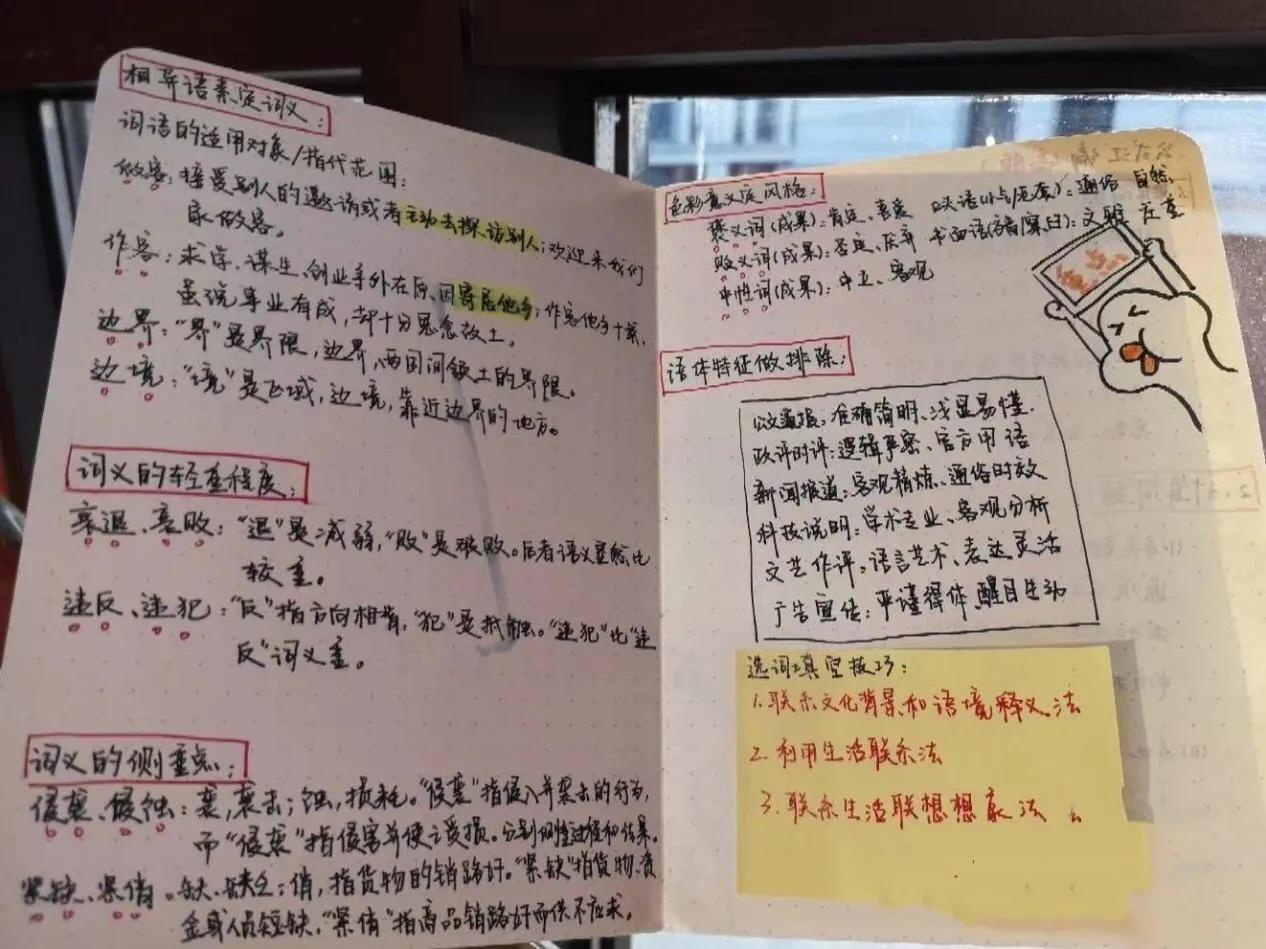 相异语素定词义：
词语的适用对象/指代范围：
做客：接受别人的邀请或者主动去探访别人；欢迎来我们
家做客。
作客：求学、谋生、创业等外在原因寄居他乡；作客他乡十载，
虽说事业有成，却十分思念故土。
边界："界"是界限，边界，两国间领土的界限。
边境："境"是区域，边境，靠近边界的地方。
词义的轻重程度：
衰退、衰败："退"是减弱，"败"是破败。后者语义显然比
较重。
违反、违犯："反"指方向相背，"犯"是抵触。"违犯"比"违
反"词义重。
词义的侧重点：
侵袭、侵蚀：袭，袭击；蚀，损耗。"侵袭"指侵入并袭击的行为，
而"侵袭"指侵害并使之受损。分别侧重过程和结果。
紧缺、紧俏。缺、缺乏；俏，指货物的销路好。"紧缺"指货物、资
金或人员短缺，"紧俏"指商品销路好而供不应求。
色彩意义定风格：
褒义词(成果)：肯定、喜爱 口头语：通俗 自然
贬义词(成果)：否定、厌弃 书面语：文雅 庄重
中性词(成果)：中立、客观
重点
语体特征做排除：
公文通报：准确简明、浅显易懂.
政评时评：逻辑严密、官方用语
新闻报道：客观精炼、通俗时效
科技说明：学术专业、客观分析
文艺作评：语言艺术、表达灵活
广告宣传：严谨得体、醒目生动
选词填空技巧：
1.联系文化背景和语境释义法
2.利用生活联系法
3.联系生活联想想象法